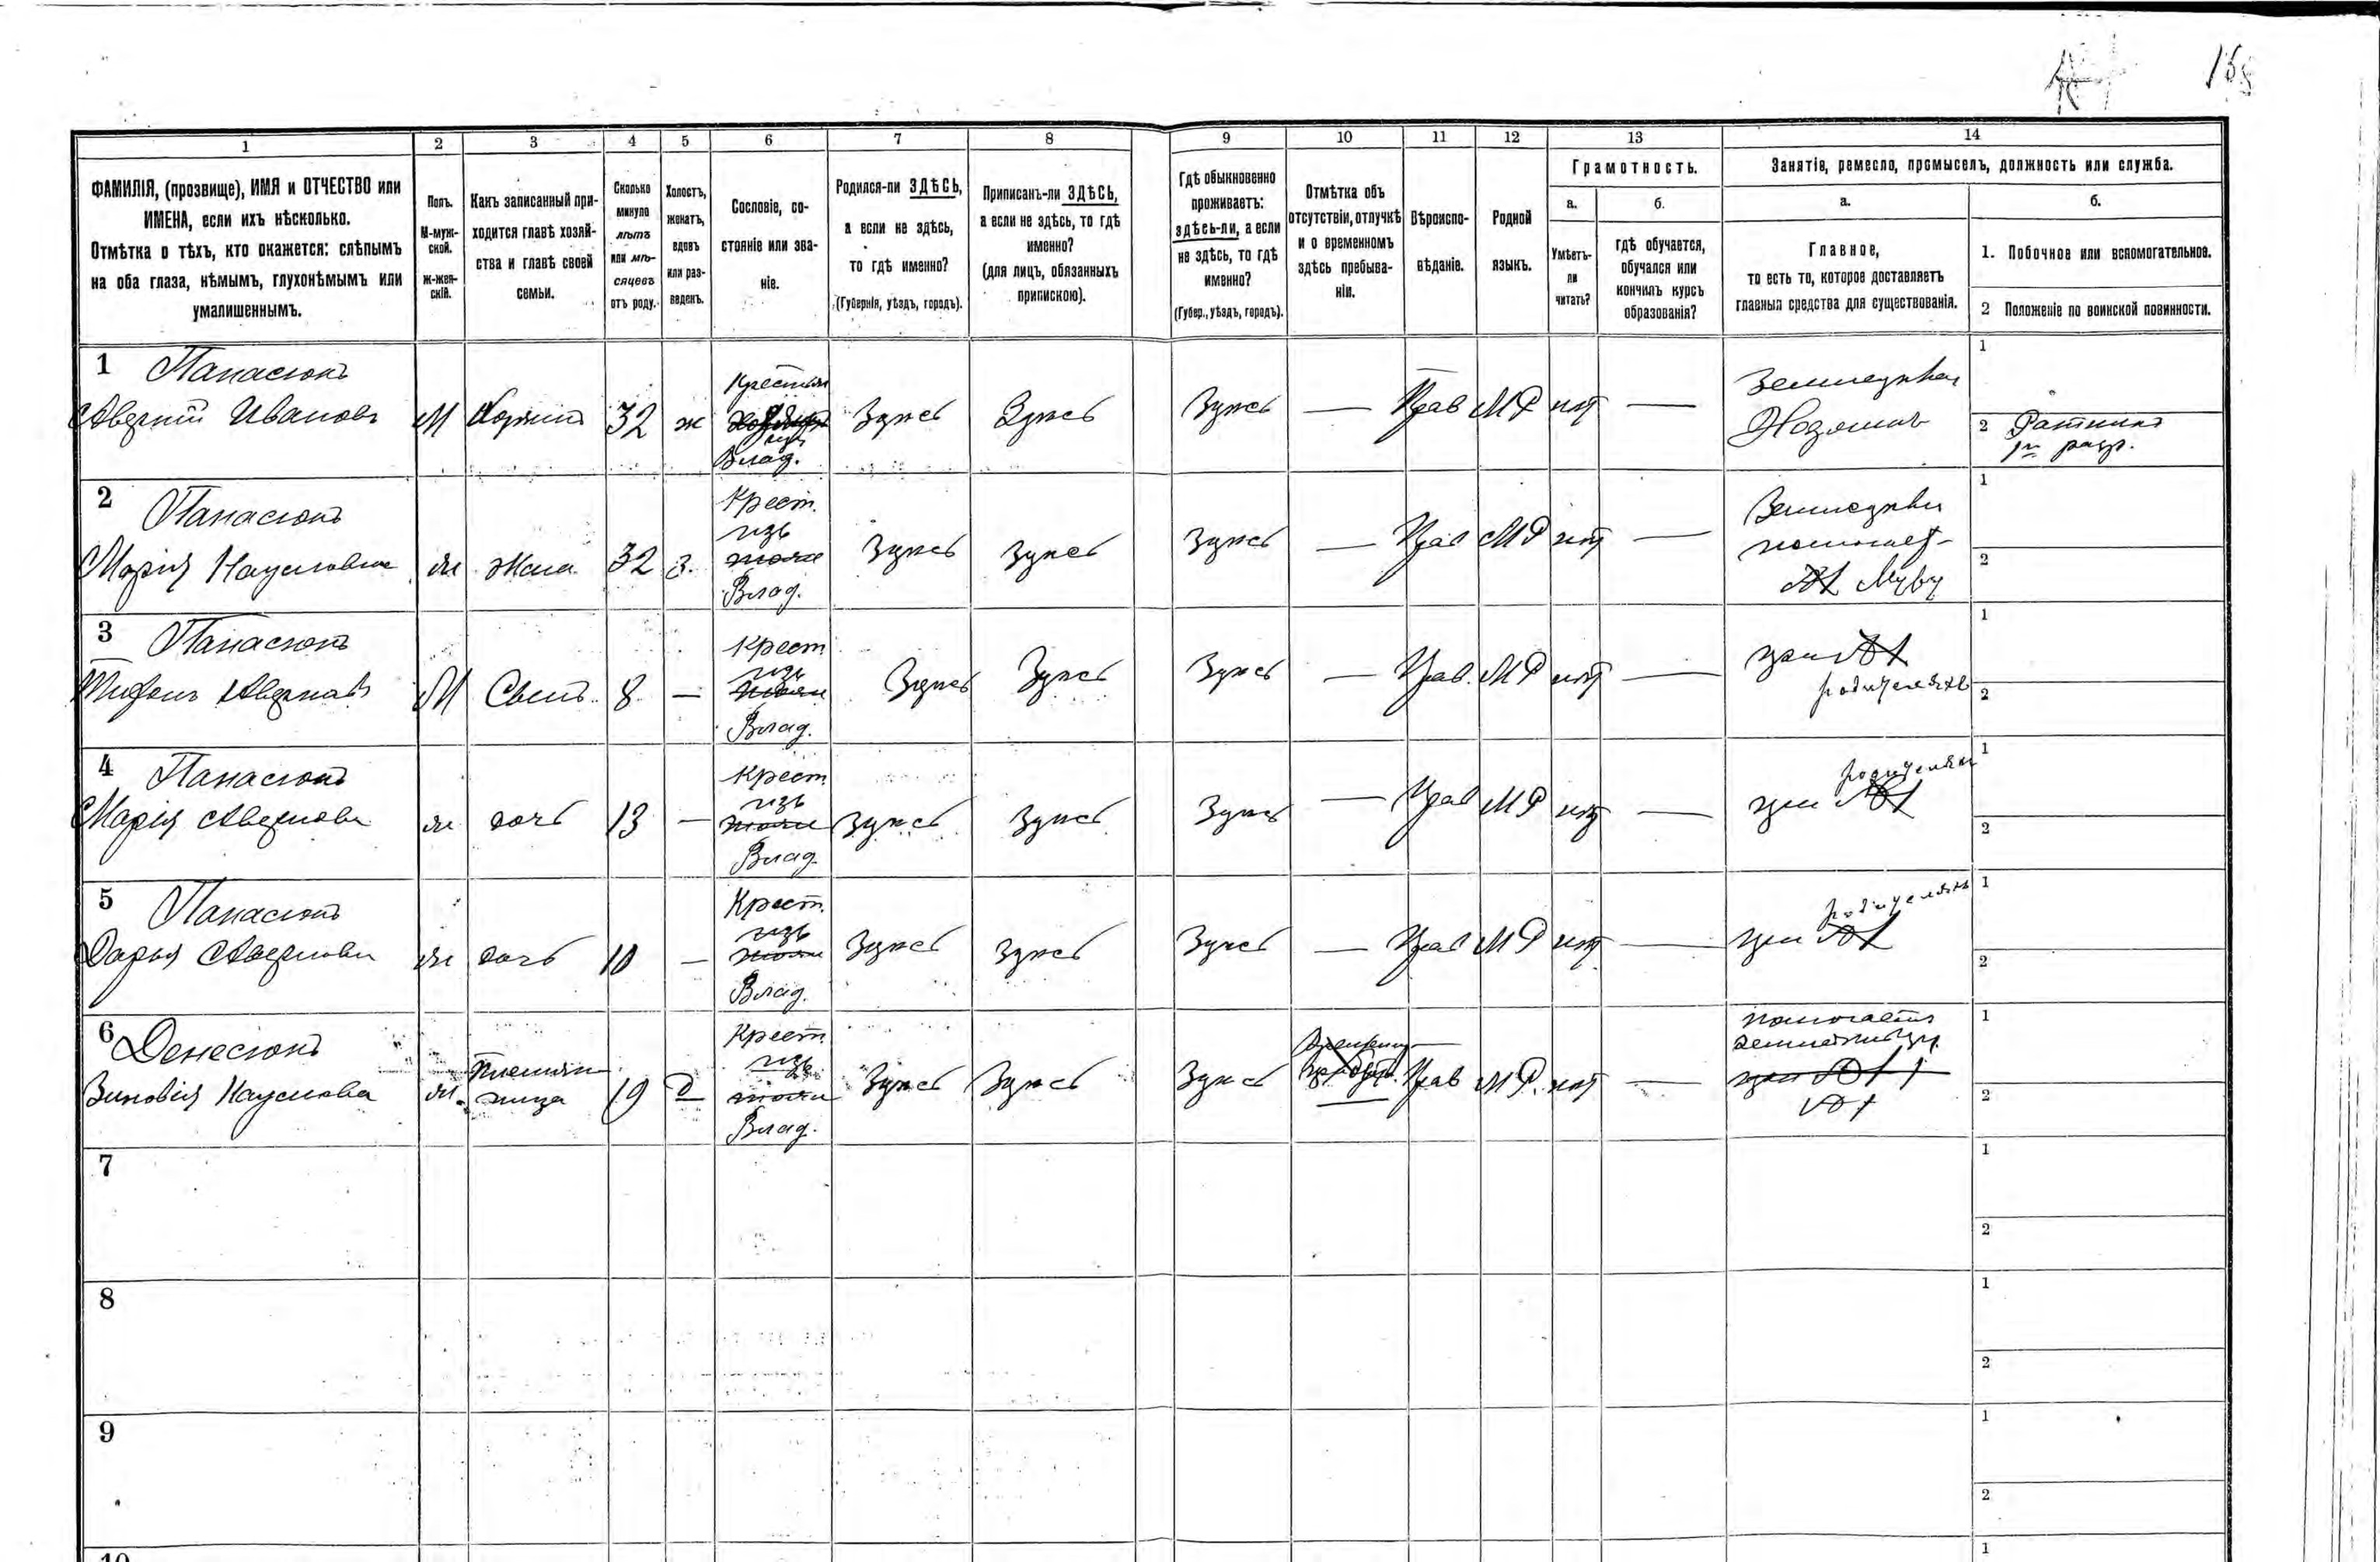 1 2 3 4 5 6 7 8 9 10 11 12 13 14
ФАМИЛІЯ, (прозвище), ИМЯ и ОТЧЕСТВО или
ИМЕНА, если ихъ нѣсколько.
Отмѣтка о тѣхъ, кто окажется: слѣпымъ
на оба глаза, нѣмымъ, глухонѣмымъ или
умалишеннымъ.
Полъ.
М-муж-
ской.
Ж-жен-
скій.
Какъ записанный при-
ходится главѣ хозяй-
ства и главѣ своей
семьи.
Сколько
минуло
лѣтъ
или мѣ-
сяцевъ
отъ роду.
Холостъ,
женатъ,
вдовъ
или раз-
веденъ.
Сословіе, со-
стояніе или зва-
ніе.
Родился-ли ЗДѢСЬ,
а если не здѣсь,
то гдѣ именно?
(Губернія, уѣздъ, городъ).
Приписанъ-ли ЗДѢСЬ,
а если не здѣсь, то гдѣ
именно?
(для лицъ, обязанныхъ
припискою).
Гдѣ обыкновенно
проживаетъ:
здѣсь-ли, а если
не здѣсь, то гдѣ
именно?
(Губер., уѣздъ, городъ).
Отмѣтка объ
отсутствіи, отлучкѣ
и о временномъ
здѣсь пребыва-
ніи.
Вѣроиспо-
вѣданіе.
Родной
языкъ.
Грамотность.
а.
Умѣетъ-
ли
читать?
б.
гдѣ обучается,
обучался или
кончилъ курсъ
образованія?
Занятія, ремесло, промыселъ, должность или служба.
а.
Главное,
то есть то, которое доставляетъ
главныя средства для существованія.
б.
1. Побочное или вспомогательное.
2 Положеніе по воинской повинности.
1 Панасюкъ
Авергій Ивановъ М 32 ж Влад. Здѣсь Здѣсь Здѣсь — Прав МР нѣт — 1
2 Ратникъ
1го разр.
2 Панасюкъ
Марія Наумовна ж Жена 32 З. Крест. изъ Влад. Здѣсь Здѣсь Здѣсь — Прав МР нѣт — помогает мужу 1
2
3 Панасюкъ
М Сынъ. 8 — Крест изъ Влад. Здѣсь Здѣсь Здѣсь — Прав. МР нѣт — при родителяхъ 1
2
4 Панасюкъ
Марія ж дочь 13 — Крест изъ Влад. Здѣсь Здѣсь Здѣсь — Прав МР нѣт — при 1
2
5 Панасюкъ
Дарья ж дочь 10 — Крест. изъ Влад. Здѣсь Здѣсь Здѣсь — Прав МР нѣт — при родителяхъ 1
2
6 Денесюкъ
Зиновія Наумова ж. Племян-
ница 19 Д Крест. изъ Влад. Здѣсь Здѣсь Здѣсь Прав МР. нѣт — помогаетъ 1
2
7 1
2
8 1
2
9 1
2
10 1